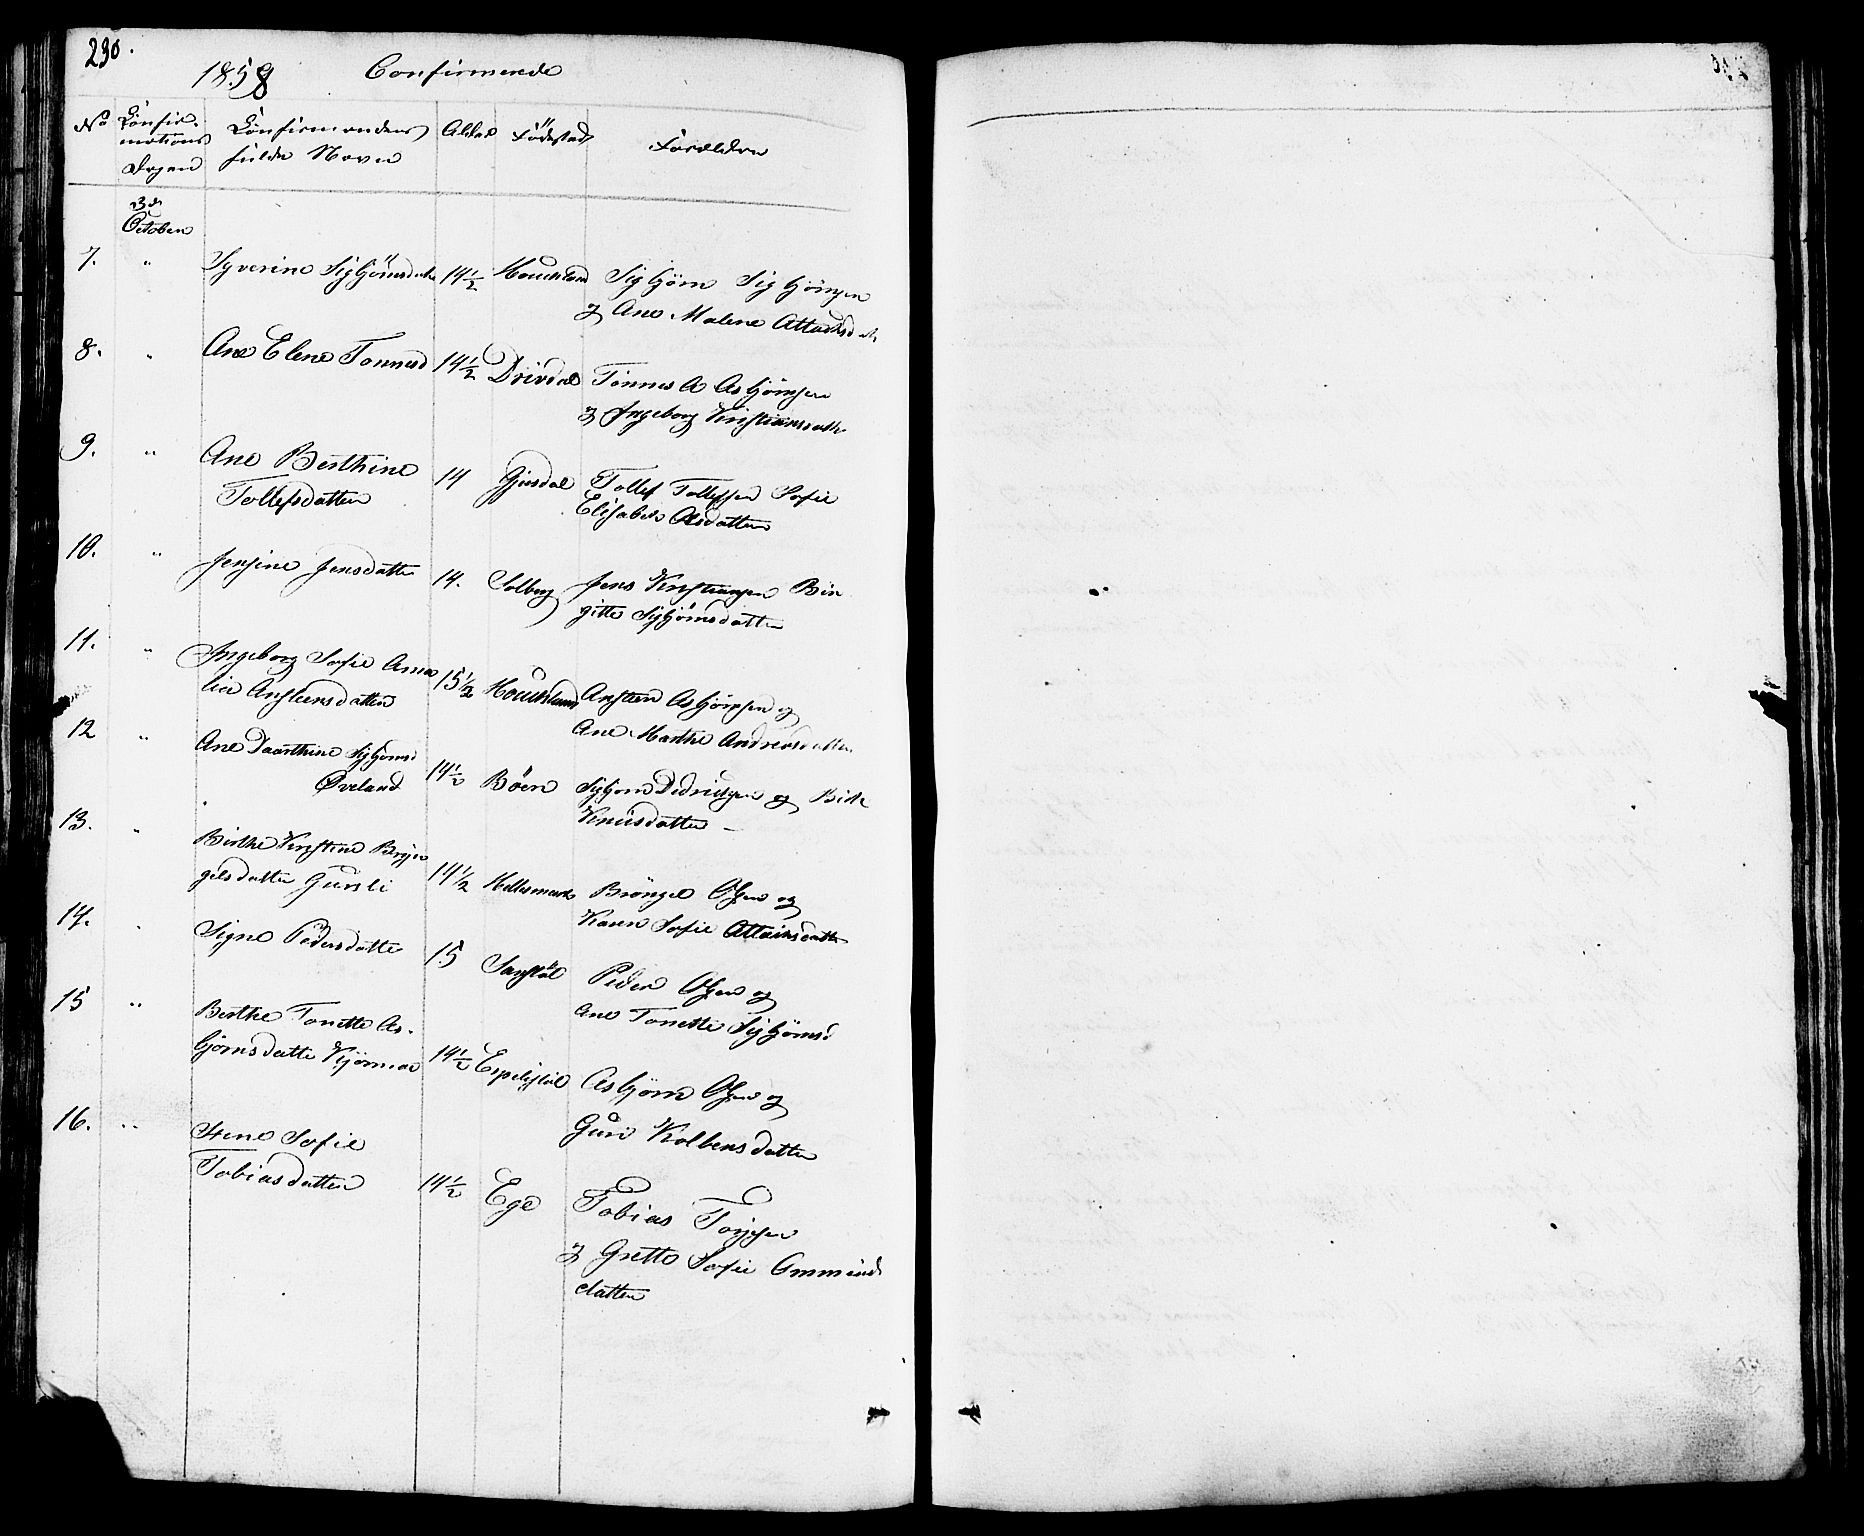 230.
1858 Confirmerede
No Confir- Confirmandens Alder Fødested Forældre
mations fulde Navn
Dagen
3die
October
7. " Syverine Sigbjörnsdatter 14½ Houkland Sigbjörn Sigbjörnsen
og Ane Malene Attachsdatter
8. " Ane Elene Tonnesd 14½ Drivdal Tönnes A Asbjörnsen
og Ingeborg Kristiansdatter
9. " Ane Berthine 14 Gjusdal Tollef Tollefsen Sofie
Tollefsdatter Elisabeth Olsdatter
10. " Jensine Jensdatter 14. Solberg Jens Kristiansen Bir
gitte Sigbjörnsdatter
11. " Ingeborg Sofie Ama
lia Anstensdatter 15½ Houkland Ansten Asbjörnsen og
Ane Marthe Andreasdatter
12 " Ane Daarthine Sigbjörnsd
Øveland 14½ Böen Sigbjorn Didriksen og Birthe
Knudsdatter –
13. " Birthe Kirstine Brynj
gelsdatter Gursli 14½ Hellesmark Bröngel Olsen og
Karen Sofie Attachsdatter
14. " Signe Pedersdatter 15 Sanstöl Peder Olsen og
Ane Tonette Sigbjörnsd
15 " Berthe Tonette As-
björnsdatter Kjörmoe 14½ Espelistöl Asbjörn Olsen og
Guri Kolbensdatter
16. " Stene Sofie
Tobiasdatter 14½ Ege Tobias Torjesen
og Grette Sofie Ommund
datter